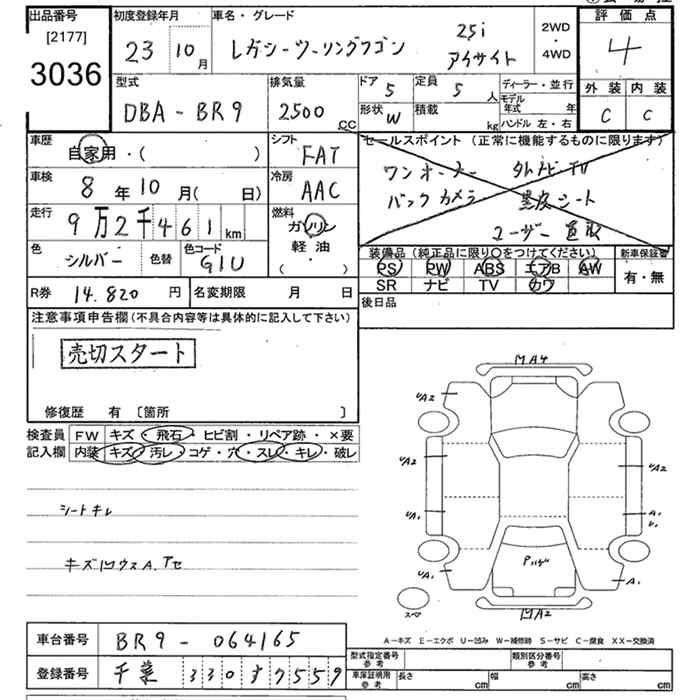 出品番号 初度登録年月 車名・グレード 評価点
[2177] 23 10月 レガシーツーリングワゴン 25i アイサイト 2WD・4WD 4
3036
型式 排気量 ドア 5 定員 5人 ディーラー・並行 外装 内装
DBA-BR9 2500cc 形状 W 積載 kg モデル年式 年 C C
ハンドル 左・右
車歴 自家用・( ) シフト FAT セールスポイント(正常に機能するものに限ります)
車検 8年10月( 日) 冷房 AAC ワンオーナー
バックカメラ 黒皮シート
走行 9万2千461km 燃料 ガソリン ユーザー買取
軽油・
( )
色 シルバー 色替 色コード G1U 装備品(純正品に限り○をつけてください) 新車保証書
PS PW ABS エアB AW 有・無
R券 14.820円 名変期限 月 日 SR ナビ TV カワ
注意事項申告欄(不具合内容等は具体的に記入して下さい) 後日品
売切スタート
修復歴 有〔箇所 〕
検査員 FW キズ・飛石・ヒビ割・リペア跡・×要
記入欄 内装 キズ・汚レ・コゲ・穴・スレ・キレ・破レ
シートキレ
MA4
UA2
UA2 UA2
UA1
Pハゲ
UA1 A1
スペア MA2
A-キズ E-エクボ U-凹み W-補修跡 S-サビ C-腐食 XX-交換済
車台番号 BR9-064165 型式指定番号 参考 類別区分番号 参考
登録番号 千葉 330 す 7559 車庫証明用 参考 長さ cm 幅 cm 高さ cm